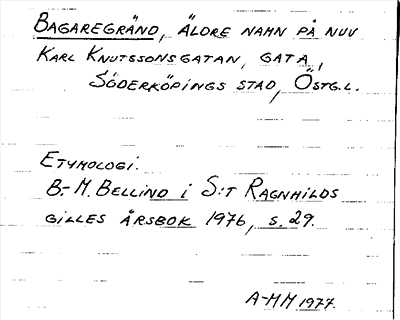 BAGAREGRÄND, ÄLDRE NAMN PÅ NUV
KARL KNUTSSONSGATAN, GATA,
SÖDERKÖPINGS STAD, ÖSTG.L.
ETYMOLOGI.
B.-M. BELLIND i S:T RAGNHILDS
GILLES ÅRSBOK 1976, s. 29.
A-MM 1977.